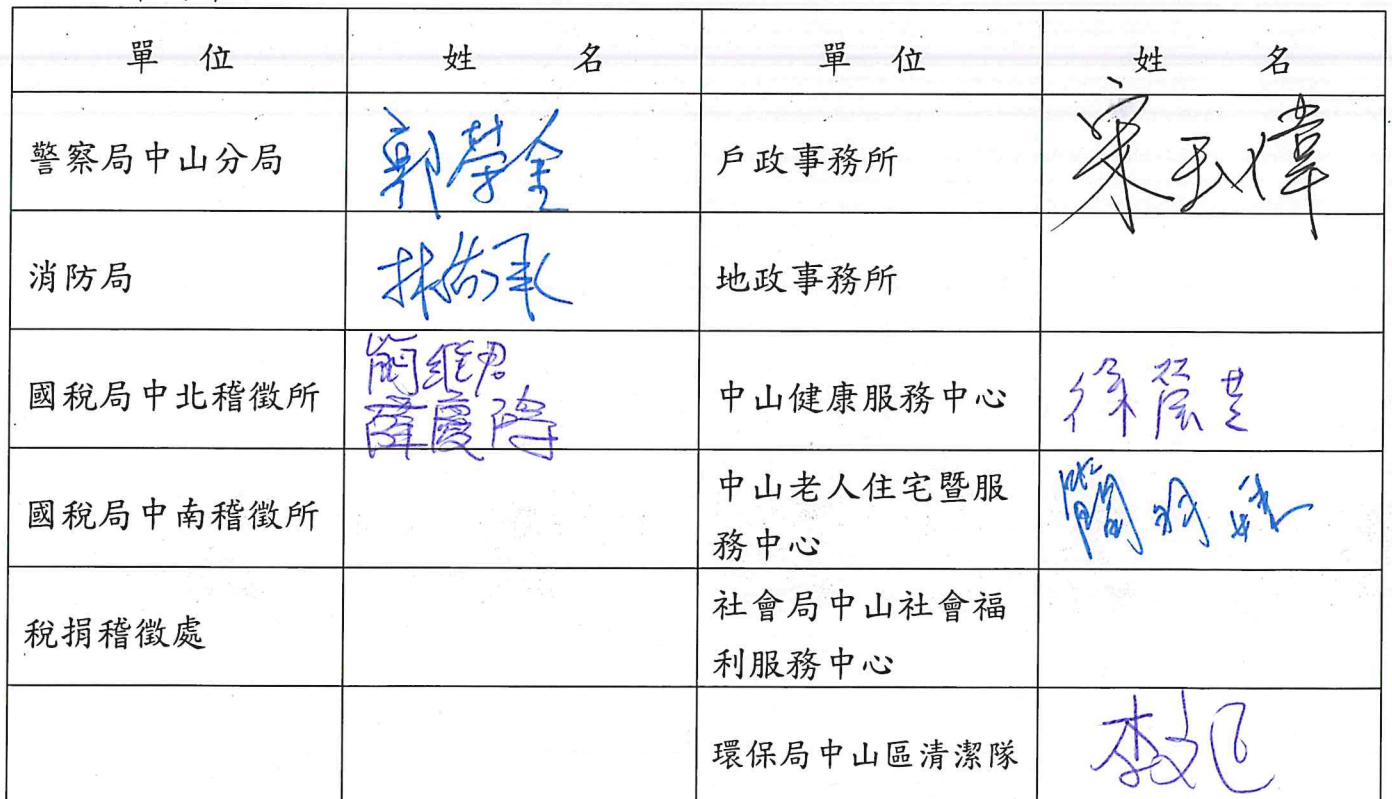 單位 姓名 單位 姓名
警察局中山分局 郭榮全 戶政事務所 宋玉偉
消防局 林佑承 地政事務所
國稅局中北稽徵所 簡
薛慶隆
中山健康服務中心 徐
國稅局中南稽徵所 中山老人住宅暨服
務中心 簡
稅捐稽徵處 社會局中山社會福
利服務中心
環保局中山區清潔隊 李文